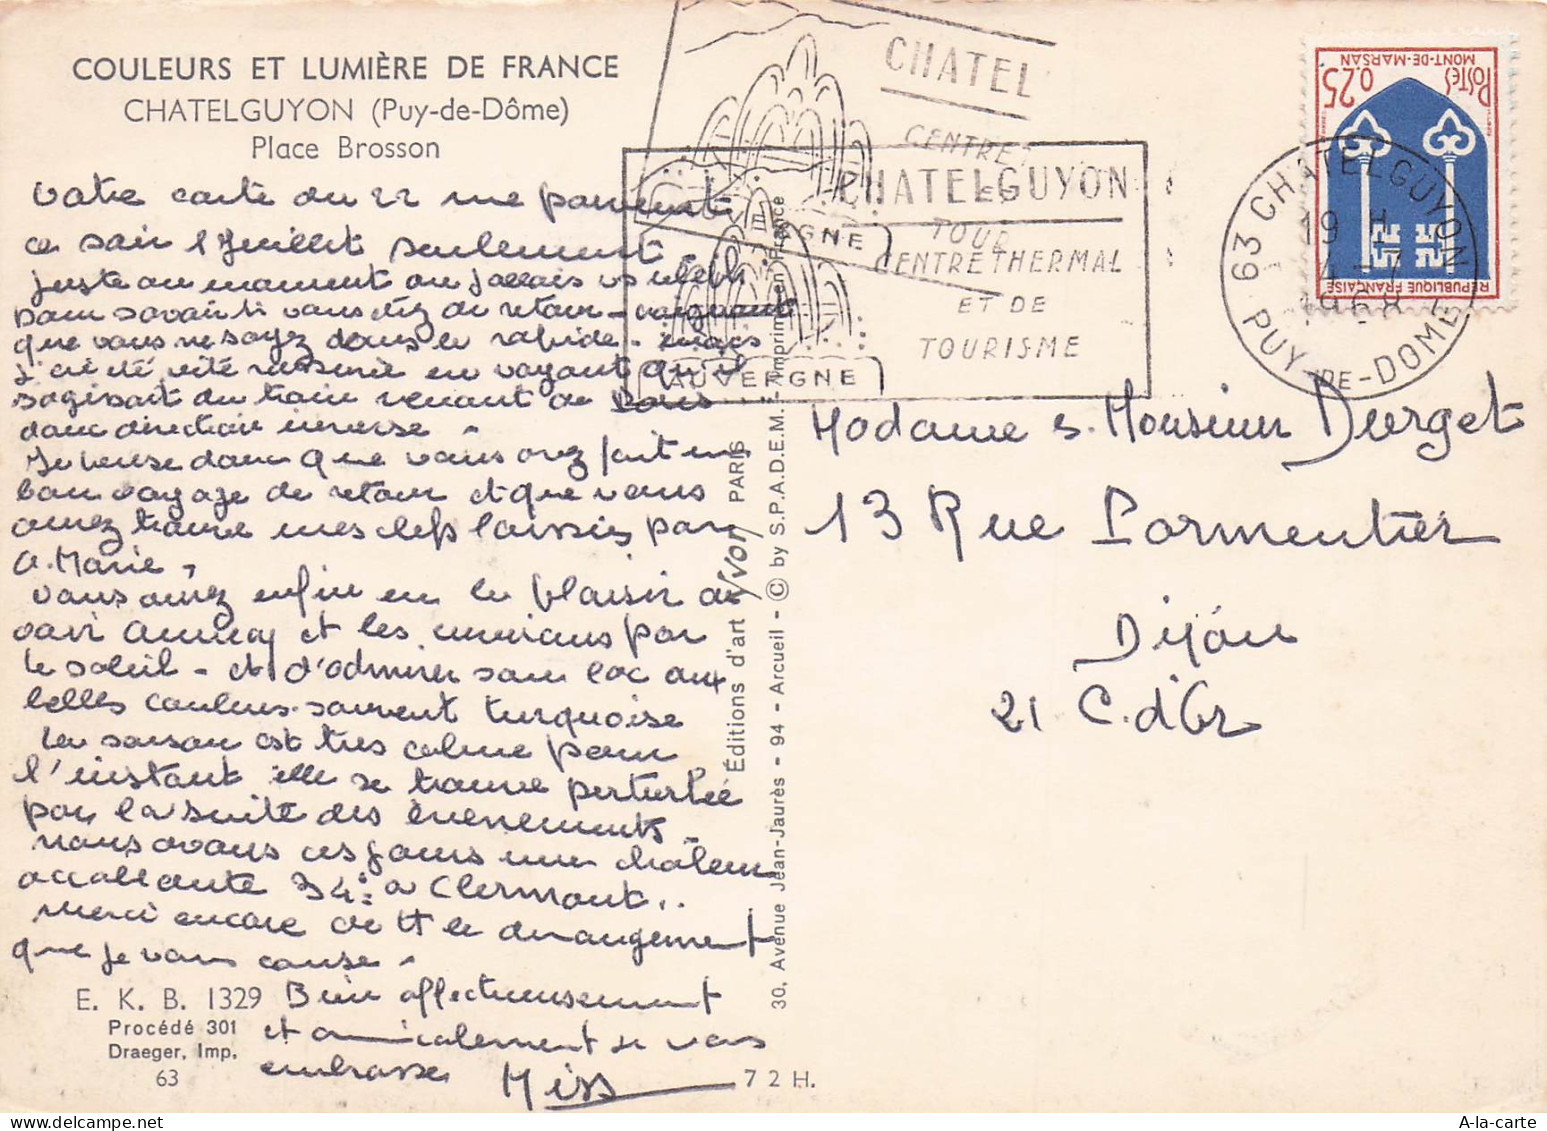 COULEURS ET LUMIÈRE DE FRANCE
CHATELGUYON (Puy-de-Dôme)
Place Brosson
Votre carte du 22 me parvient
ce soir 1 Juillet seulement
juste au moment ou j'allais vs
pour savoir si vous étiez de retour - craignant
que vous ne soyez dans le rapide - mais
j'ai été vite rassurée en voyant qu'il
s'agissait du train venant de Paris
donc direction inverse -
Je pense donc que vous avez fait un
bon voyage de retour et que vous
avez trouvé mes clefs laissées par
A. Marie,
vous avez enfin eu le plaisir de
voir Annecy et les environs par
le soleil - et d'admirer son lac aux
belles couleurs souvent turquoise
La saison est très calme pour
l'instant elle se trouve perturbée
par la suite des évènements -
nous avons ces jours une chaleur
accablante 34° a Clermont..
Merci encore de tt le dérangement
que je vous cause -
Bien affectueusement
et amicalement je vous
embrasse Miss
E. K. B. 1329
Procédé 301
Draeger, Imp.
63
72 H.
Éditions d'art Yvon PARIS
30, Avenue Jean-Jaurès - 94 - Arcueil - © by S.P.A.D.E.M. - Imprimé en France
CHATEL
CENTRE
TOU
GNE
CHATELGUYON
CENTRE THERMAL
ET DE
TOURISME
AUVERGNE
POSTES 0,25
MONT-DE-MARSAN
RÉPUBLIQUE FRANÇAISE
63 CHATELGUYON
19 H
4-7
1968
PUY-DE-DOME
Madame & Monsieur Durget
13 Rue Parmentier
Dijon
21 C. d'Or
A-la-carte